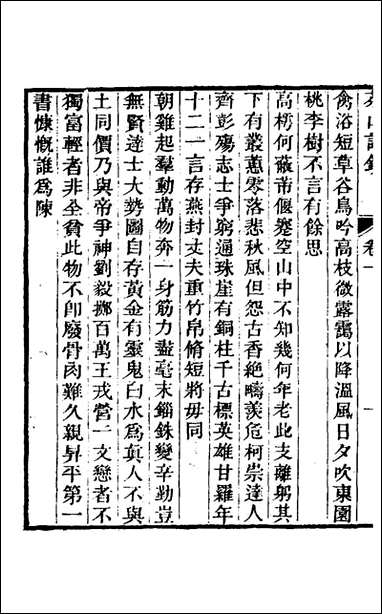 禽浴短草谷鳥吟高枝微露靄以降溫風日夕吹東園
桃李樹不言有餘思
高樗何蔽芾偃蹇空山中不知幾何年老此支離躬其
下有叢蕙零落悲秋風但怨古香絶疇羨危柯崇達人
齊彭殤志士爭窮通珠崖有銅柱千古標英雄甘羅年
十二一言存燕封丈夫重竹帛脩短將毋同
朝雞起羣動萬物奔一身筋力盡毫末錙銖變辛勤豈
無賢達士大勢圖自存黃金有靈鬼白水爲眞人不與
土同價乃與帝爭神劉毅擲百萬王戎營一文戀者不
獨富輕者非全貧此物不卽廢骨肉難久親昇平第一
書慷慨誰爲陳
卷一